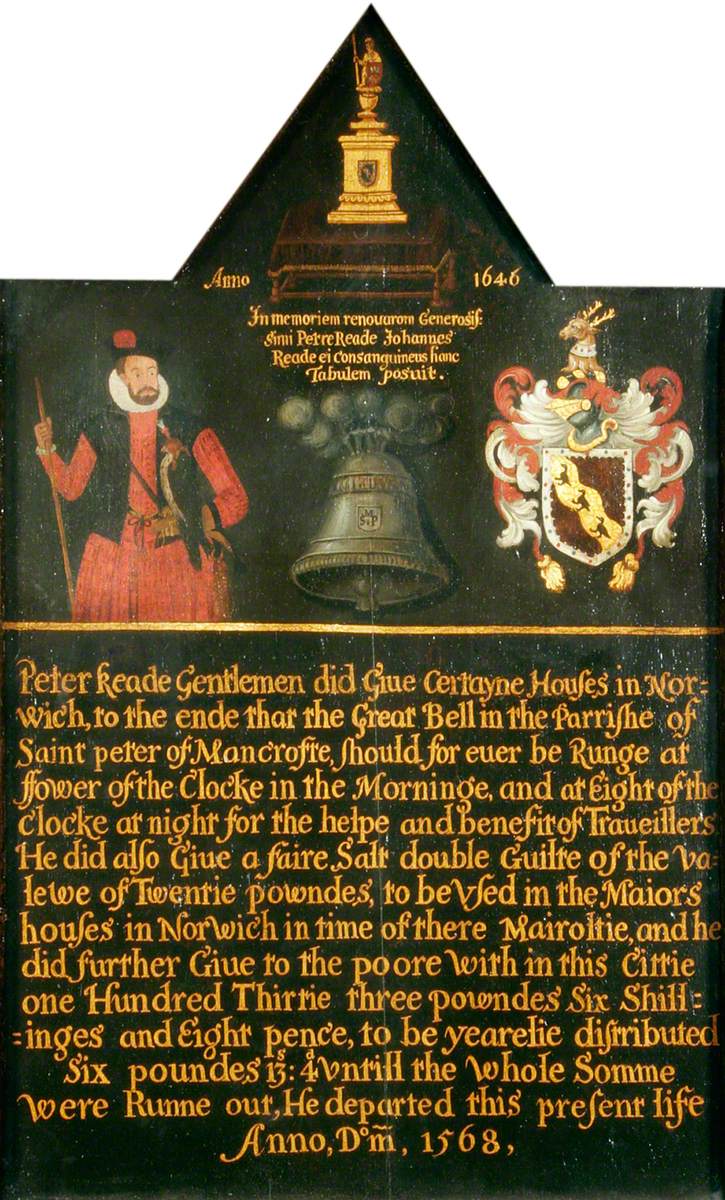 Anno 1646
In memoriem renouarom Generosis:
simi Petre Reade Johannes
Reade ei consanguineus hanc
Tabulem posuit.
M
S P
Peter Reade Gentlemen did Giue Certayne Houses in Nor=
wich, to the ende that the Great Bell in the Parrishe of
Saint peter of Mancrofte, should for euer be Runge at
ffower of the Clocke in the Morninge, and at Eight of the
Clocke at night for the helpe and benefit of Traueillers
He did also Giue a faire Salt double Guilte of the Va-
lewe of Twentie powndes, to be Vsed in the Maiors
houses in Norwich in time of there Mairoltie, and he
did further Giue to the poore with in this Cittie
one Hundred Thirtie three powndes Six Shill=
=inges and Eight pence, to be yearelie distributed
Six poundes 13s: 4d Vntill the whole Somme
were Runne out, He departed this present life
Anno, Dom̄, 1568,